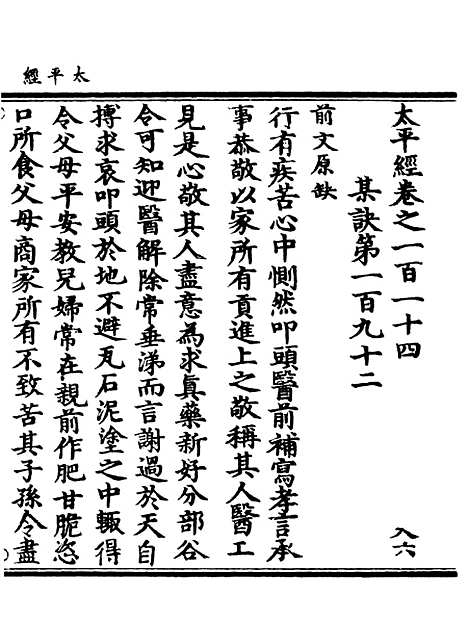 太平經
太平經卷之一百一十四
入六
某訣第一百九十二
前文原缺
行有疾苦心中惻然叩頭醫前補寫孝言承
事恭敬以家所有貢進上之敬稱其人醫工
見是心敬其人盡意為求真藥新好分部谷
令可知迎醫解除常垂涕而言謝過於天自
搏求哀叩頭於地不避瓦石泥塗之中輒得
令父母平安教兒婦常在親前作肥甘脆恣
口所食父母商家所有不致苦其子孫令盡